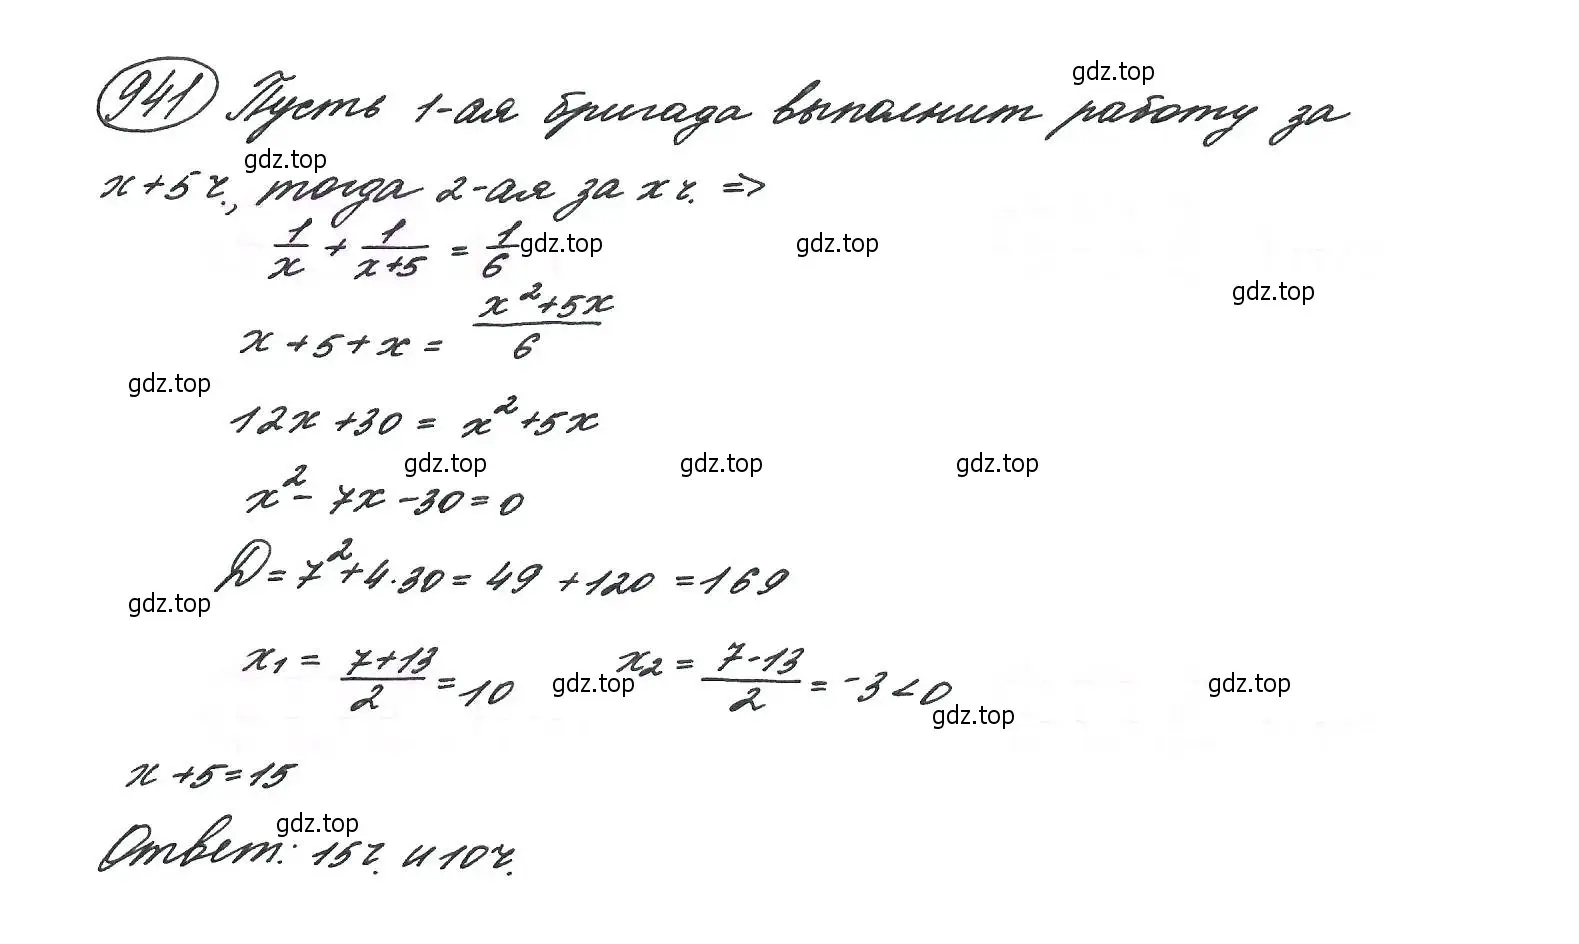 941 Пусть 1-ая бригада выполнит работу за
gdz.top
gdz.top
x+5 ч., тогда 2-ая за x ч. =>
1/x + 1/(x+5) = 1/6
gdz.top
gdz.top
gdz.top
x+5+x = (x²+5x)/6
gdz.top
12x+30 = x²+5x
gdz.top
gdz.top
gdz.top
x²-7x-30=0
D=7²+4·30=49+120=169
gdz.top
x₁ = (7+13)/2 = 10 x₂ = (7-13)/2 = -3<0
gdz.top
gdz.top
gdz.top
x+5=15
gdz.top
Ответ: 15ч. и 10ч.